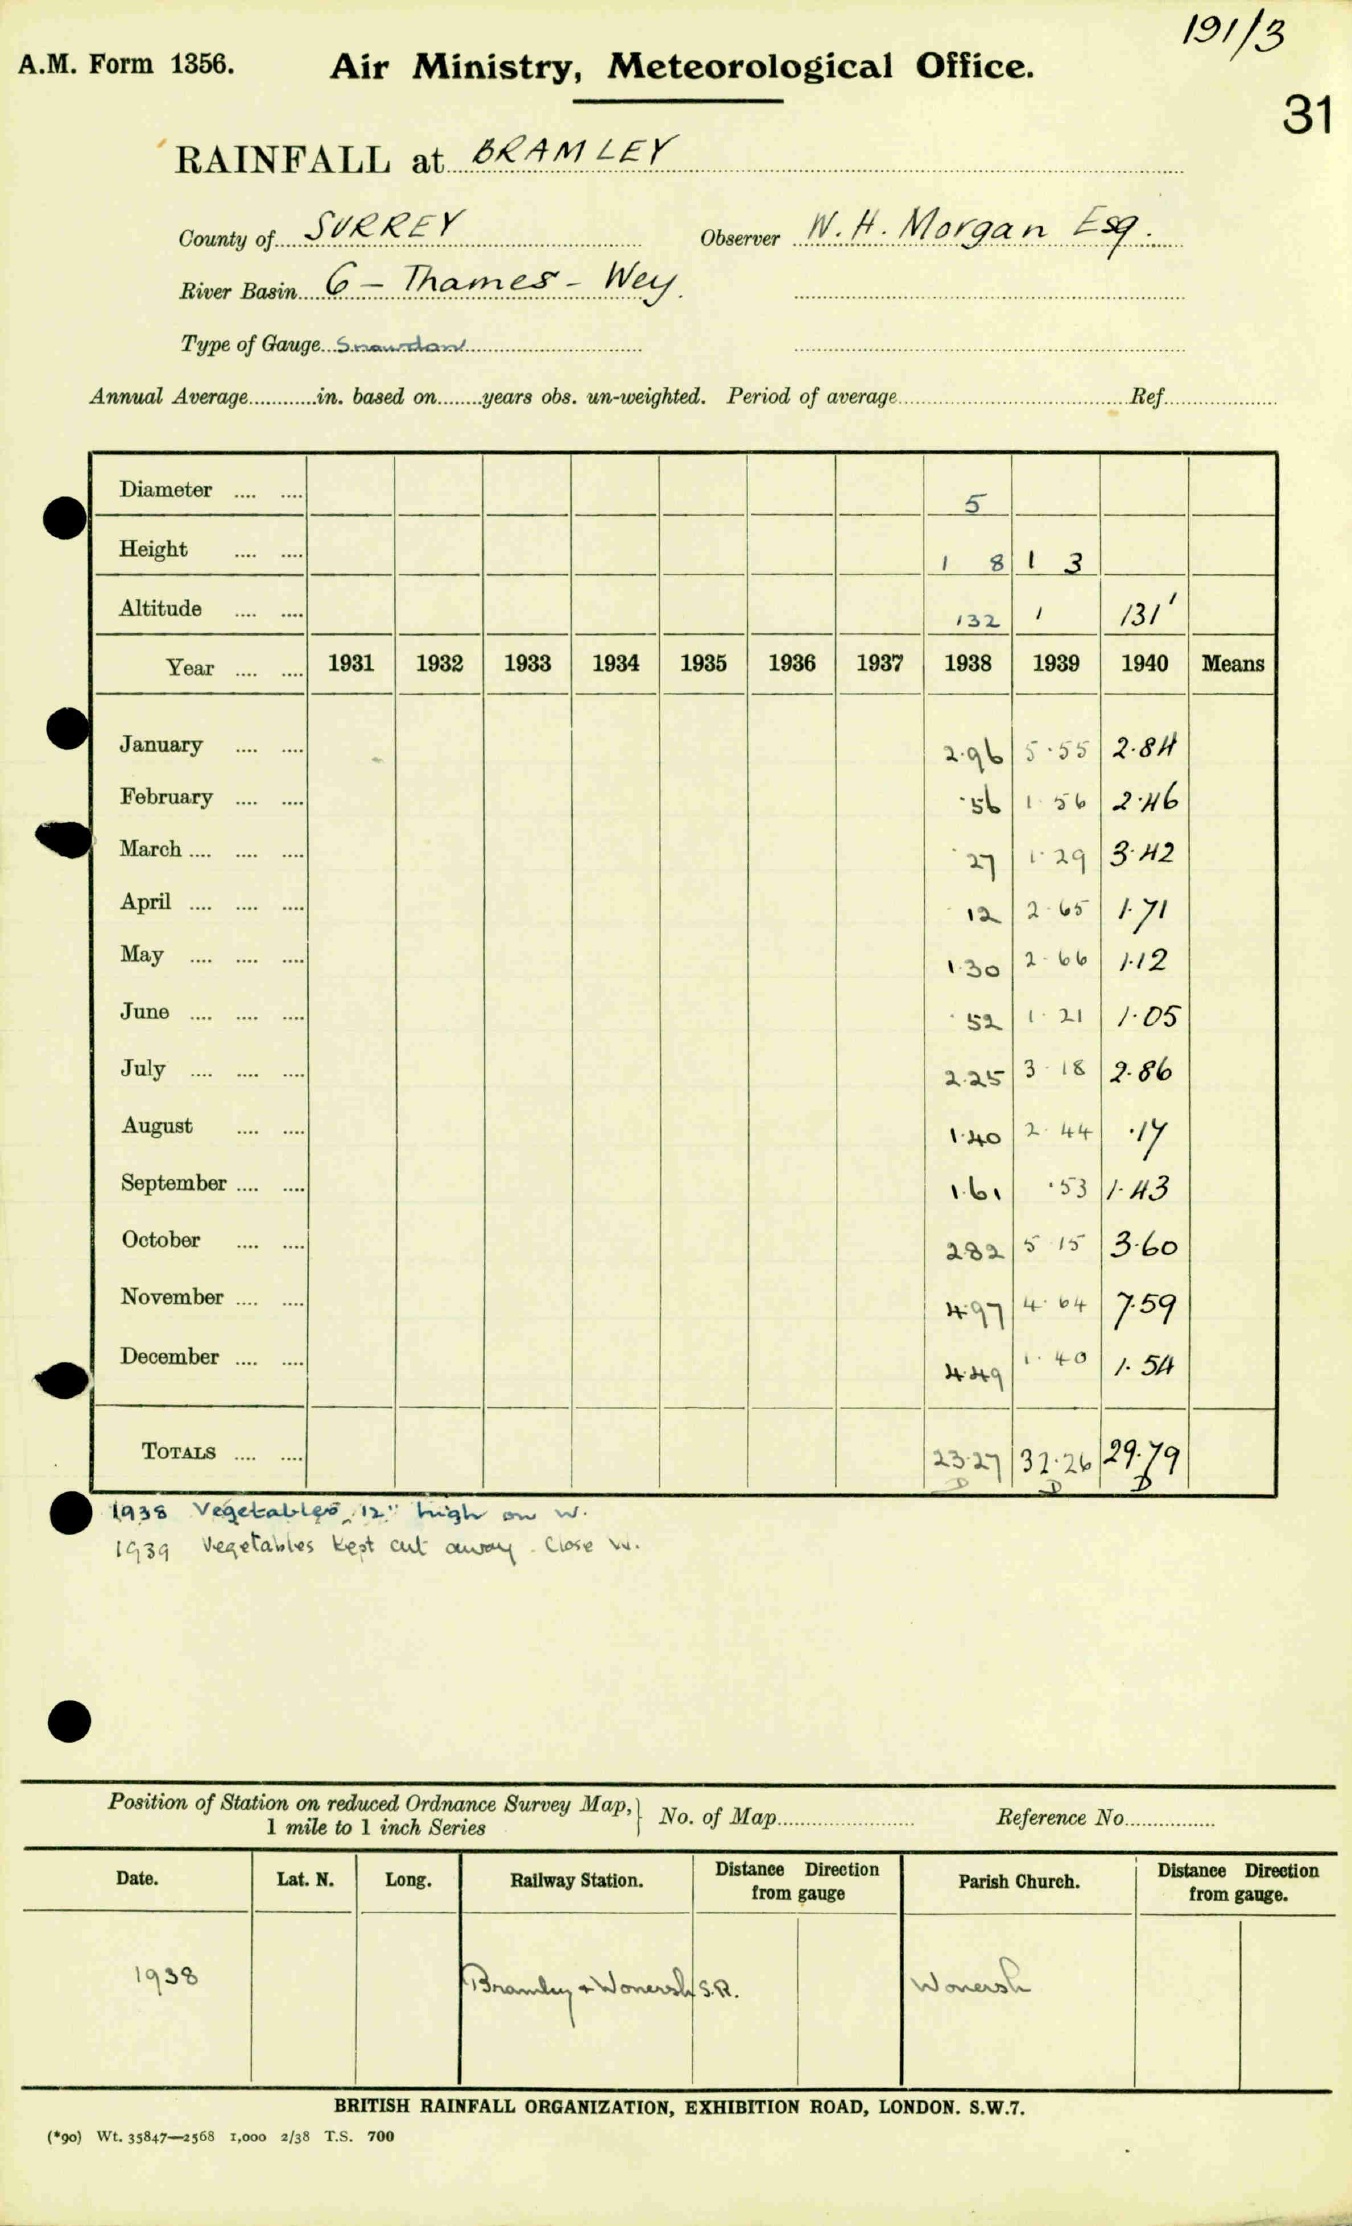 191/3
A.M. Form 1356. Air Ministry, Meteorological Office.
31
RAINFALL at BRAMLEY
County of SURREY Observer W. H. Morgan Esq.
River Basin 6 – Thames – Wey.
Type of Gauge Snowdon
Annual Average............in. based on........years obs. un-weighted. Period of average.................... Ref....................
Diameter .... .... 5
Height .... .... 1 8 1 3
Altitude .... .... 132 1 131'
Year .... .... 1931 1932 1933 1934 1935 1936 1937 1938 1939 1940 Means
January .... .... 2.96 5.55 2.84
February .... .... .56 1.56 2.46
March .... .... .... .27 1.29 3.42
April .... .... .... .12 2.65 1.71
May .... .... .... 1.30 2.66 1.12
June .... .... .... .52 1.21 1.05
July .... .... .... 2.25 3.18 2.86
August .... .... 1.40 2.44 .17
September .... .... 1.61 .53 1.43
October .... .... 2.82 5.15 3.60
November .... .... 4.97 4.64 7.59
December .... .... 4.49 1.40 1.54
TOTALS .... .... 23.27 32.26 29.79
D D D
1938 Vegetables, 12" high on W.
1939 Vegetables kept cut away. Close W.
Position of Station on reduced Ordnance Survey Map, 1 mile to 1 inch Series } No. of Map.................... Reference No................
Date. Lat. N. Long. Railway Station. Distance Direction from gauge Parish Church. Distance Direction from gauge.
1938 Bramley + Wonersh S.R. Wonersh
BRITISH RAINFALL ORGANIZATION, EXHIBITION ROAD, LONDON. S.W.7.
(*90) Wt. 35847—2568 1,000 2/38 T.S. 700